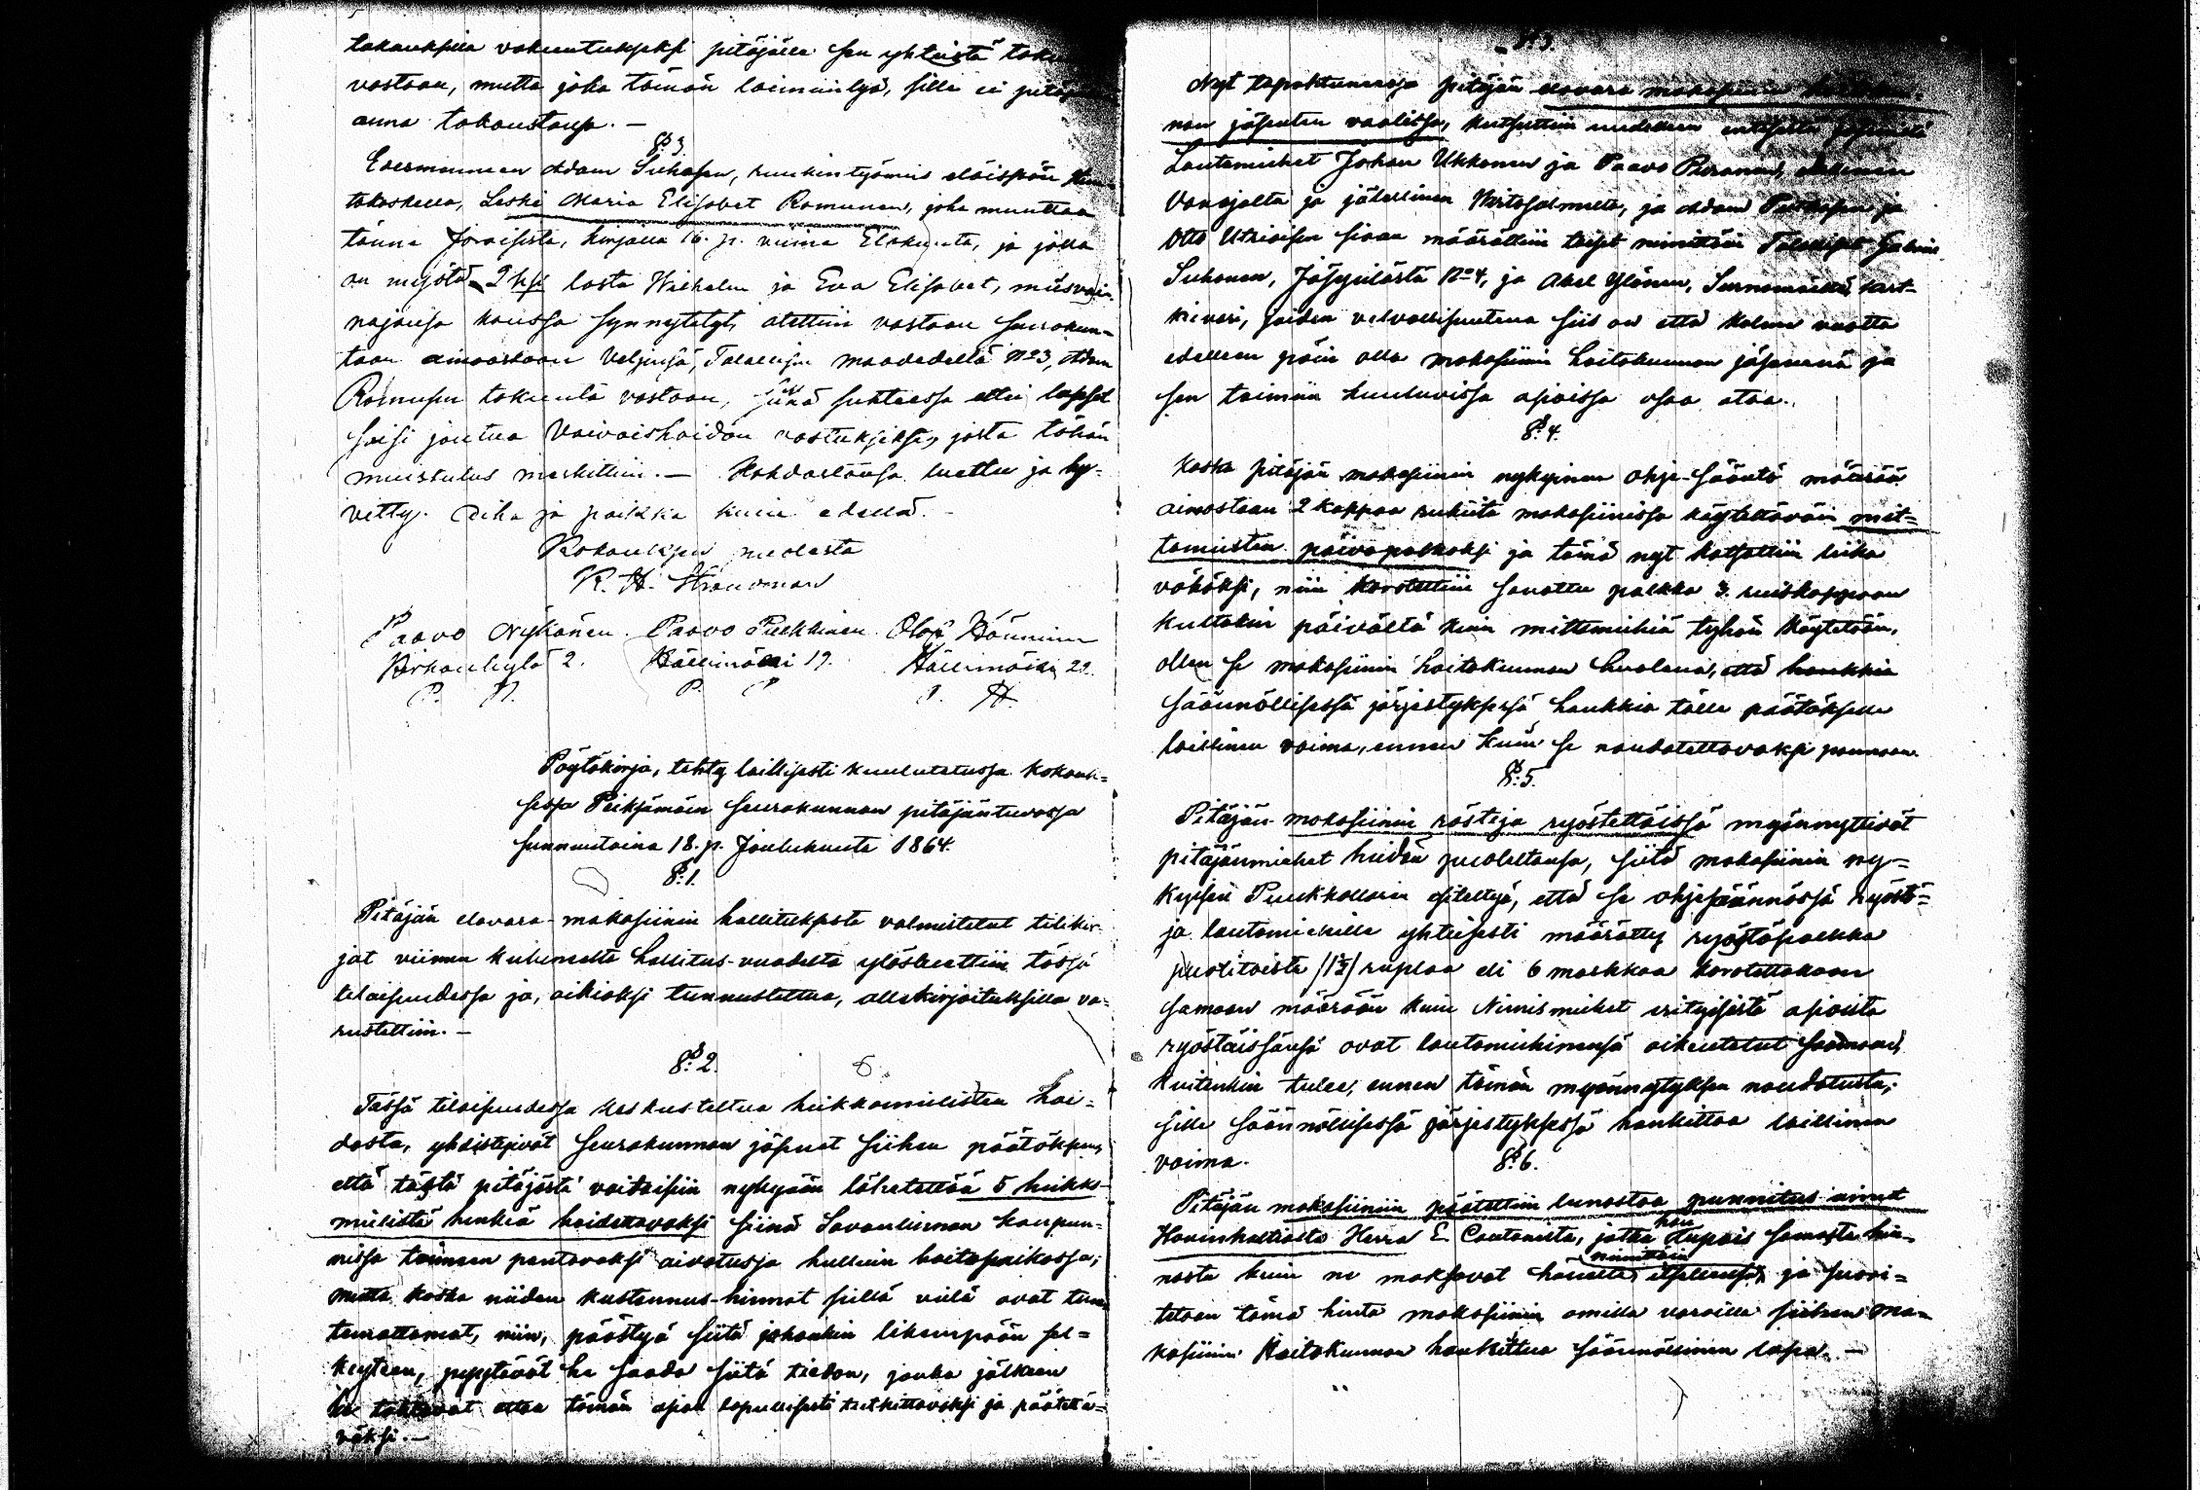 takauksilla vakuutukseksi pitäjälle sen yhteistä
vastaan, mutta joka tämän laiminlyö, sille ei
anna takaustansa. —
§ 3.
Edesmennen Adam Siikasen, ruukintyömies eläissään
Leski Maria Elisabet Romunen, joka muuttaa
tänne Joroisista, kirjalla 16. p. viime Elokuuta, ja jolla
on myötä 2 lasta Wilhelm ja Eva Elisabet,
kanssa synnytetyt, otettiin vastaan seurakun-
taan ainoastaan Veljensä, Talollisen maadedeltä No 3, Adam
Romusen takuuta vastaan, siinä suhteessa ettei lapset
saisi joutua Vaivaishoidon vastukseksi, josta tähän
muistutus merkittiin. — Kohdastansa luettu ja hy-
vetty. Aika ja paikka kuin edellä. —
Kokouksen puolesta
K. H. Strandman
Paavo Nykänen. Paavo Pulkkinen. Olof Hänninen
Pörkankylä 2. Hällinmäki 19. Hällinmäki 22.
P. N. P. P. O. H.
Pöytäkirja, tehty laillisesti kuulutetussa kokouk-
sessa Pieksämäen seurakunnan pitäjäntuvassa
sunnuntaina 18. p. Joulukuuta 1864.
§ 1.
Pitäjän elovara-makasiinin hallituksesta valmistetut tilikir-
jat viimen kuluneelta hallitus-vuodelta ylösluettiin tässä
tilaisuudessa ja, oikiaksi tunnustettua, allekirjoituksilla va-
rustettiin. —
§ 2.
Tässä tilaisuudessa keskusteltua heikkomielisten hoi-
dosta, yhdistyivät seurakunnan jäsenet siihen päätökseen,
että tästä pitäjästä voitaisiin nykyään lähetettää 5 heikko-
mielistä henkiä hoidettavaksi siinä Savonlinnan kaupun-
nissa toimeen pantavaksi aivotussa hulluin hoitopaikassa;
mutta koska niiden kustannus-hinnat siellä vielä ovat tun-
temattomat, niin, päästyä siitä johonkin likempään sel-
keyteen, pyytävät he saada siitä tiedon, jonka jälkeen
he tahtovat ottaa tämän asian lopullisesti tutkittavaksi ja päätettä-
väksi. —
§ 3.
Nyt tapahtuneessa pitäjän elovara makasiinin hoitokun-
nan jäsenten vaalissa, kutsuttiin uudelleen entisistä jäsenistä
Lautamiehet Johan Ukkonen ja Paavo
ja jälellinen ja Adam ja
Otto Utriaisen sijaan määrättiin taijet nimittäin Talolliset
Suhonen, Jäsyulästä No 4, ja Abel Ylönen,
joiden velvollisuutena siis on että kolme vuotta
edelleen päin olla makasiinin hoitokunnan jäsenenä ja
sen toimiin kuuluvissa asioissa osaa ottaa.
§ 4.
Koska pitäjän makasiinin nykyinen ohje-sääntö määrää
ainoastaan 2 kappaa rukiita makasiinissa käytettäväin mit-
tamiesten päiväpalkaksi ja tämä nyt katsottiin liika
vähäksi, niin korotettiin sanottu palkka 3. ruiskappaan
kultakin päivältä kuin mittamiehiä tyhön käytetään,
ollen se makasiinin hoitokunnan huolena, että hankkia
säännöllisessä järjestyksessä hankkia tälle päätökselle
laillinen voima, ennen kuin se noudatettavaksi pannaan.
§ 5.
Pitäjän makasiinin rästiä ryöstettäissä myönnyttivät
pitäjänmiehet heidän puoleltansa, siitä makasiinin ny-
kyisen esiteltyä, että se ohjesäännössä ryöstö-
ja lautamiehille yhteisesti määrätty ryöstöpalkka
puolitoista /1½/ ruplaa eli 6 markkaa korotettakoon
samaan määrään kuin Nimismiehet erityisistä asioista
ryöstäissänsä ovat lautamiehinensä oikeutetut saamaan,
kuitenkin tulee, ennen tämän myönnytyksen noudatusta,
sille säännöllisessä järjestyksessä hankittaa laillinen
voima.
§ 6.
Pitäjän makasiiniin päätettiin lunastaa punnitus aineet
Herra E. jotka hän samasta hin-
nasta kuin ne maksavat hänelle nimittäin itsellensä, ja suori-
tetaan tämä hinta makasiinin omilla varoilla siihen ma-
kasiinin Hoitokunnan hankittua säännöllinen lupa. —